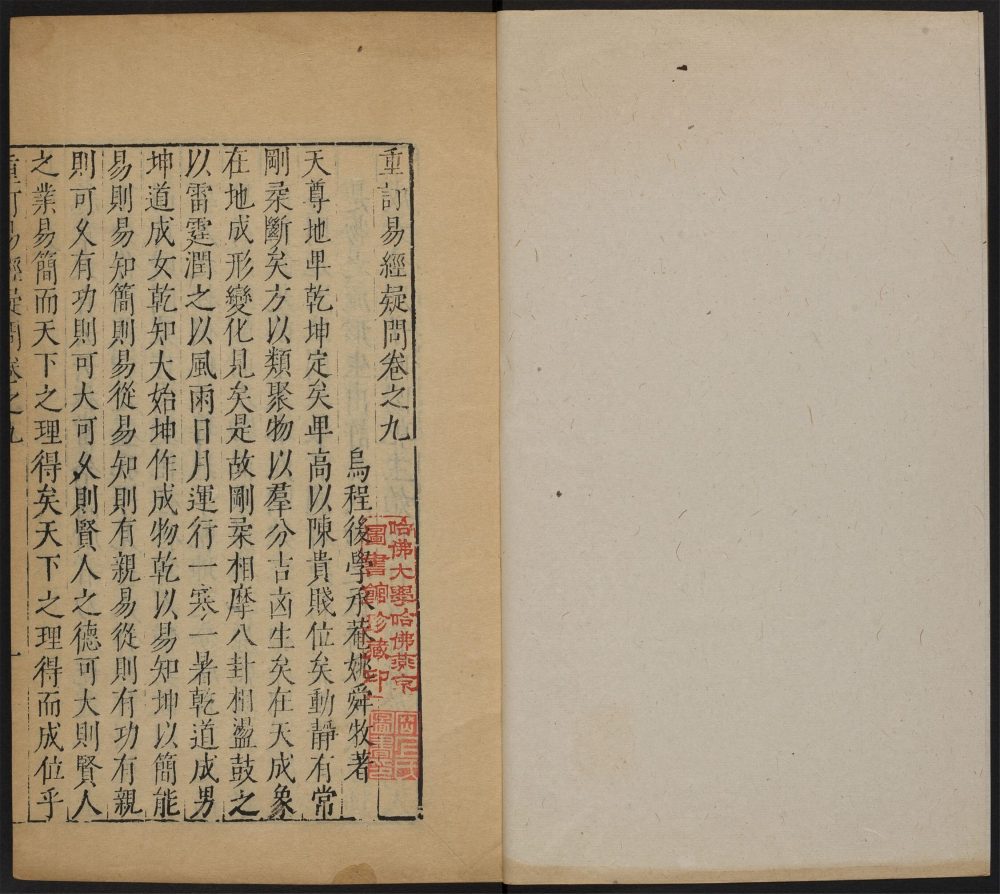 重訂易經疑問卷之九
烏程後學承菴姚舜牧著
天尊地卑乾坤定矣卑高以陳貴賤位矣動靜有常
剛柔斷矣方以類聚物以羣分吉凶生矣在天成象
在地成形變化見矣是故剛柔相摩八卦相盪鼓之
以雷霆潤之以風雨日月運行一寒一暑乾道成男
坤道成女乾知大始坤作成物乾以易知坤以簡能
易則易知簡則易從易知則有親易從則有功有親
則可久有功則可大可久則賢人之德可大則賢人
之業易簡而天下之理得矣天下之理得而成位乎
重訂易經疑問卷之九
一
哈佛大學哈佛燕京
圖書館珍藏印